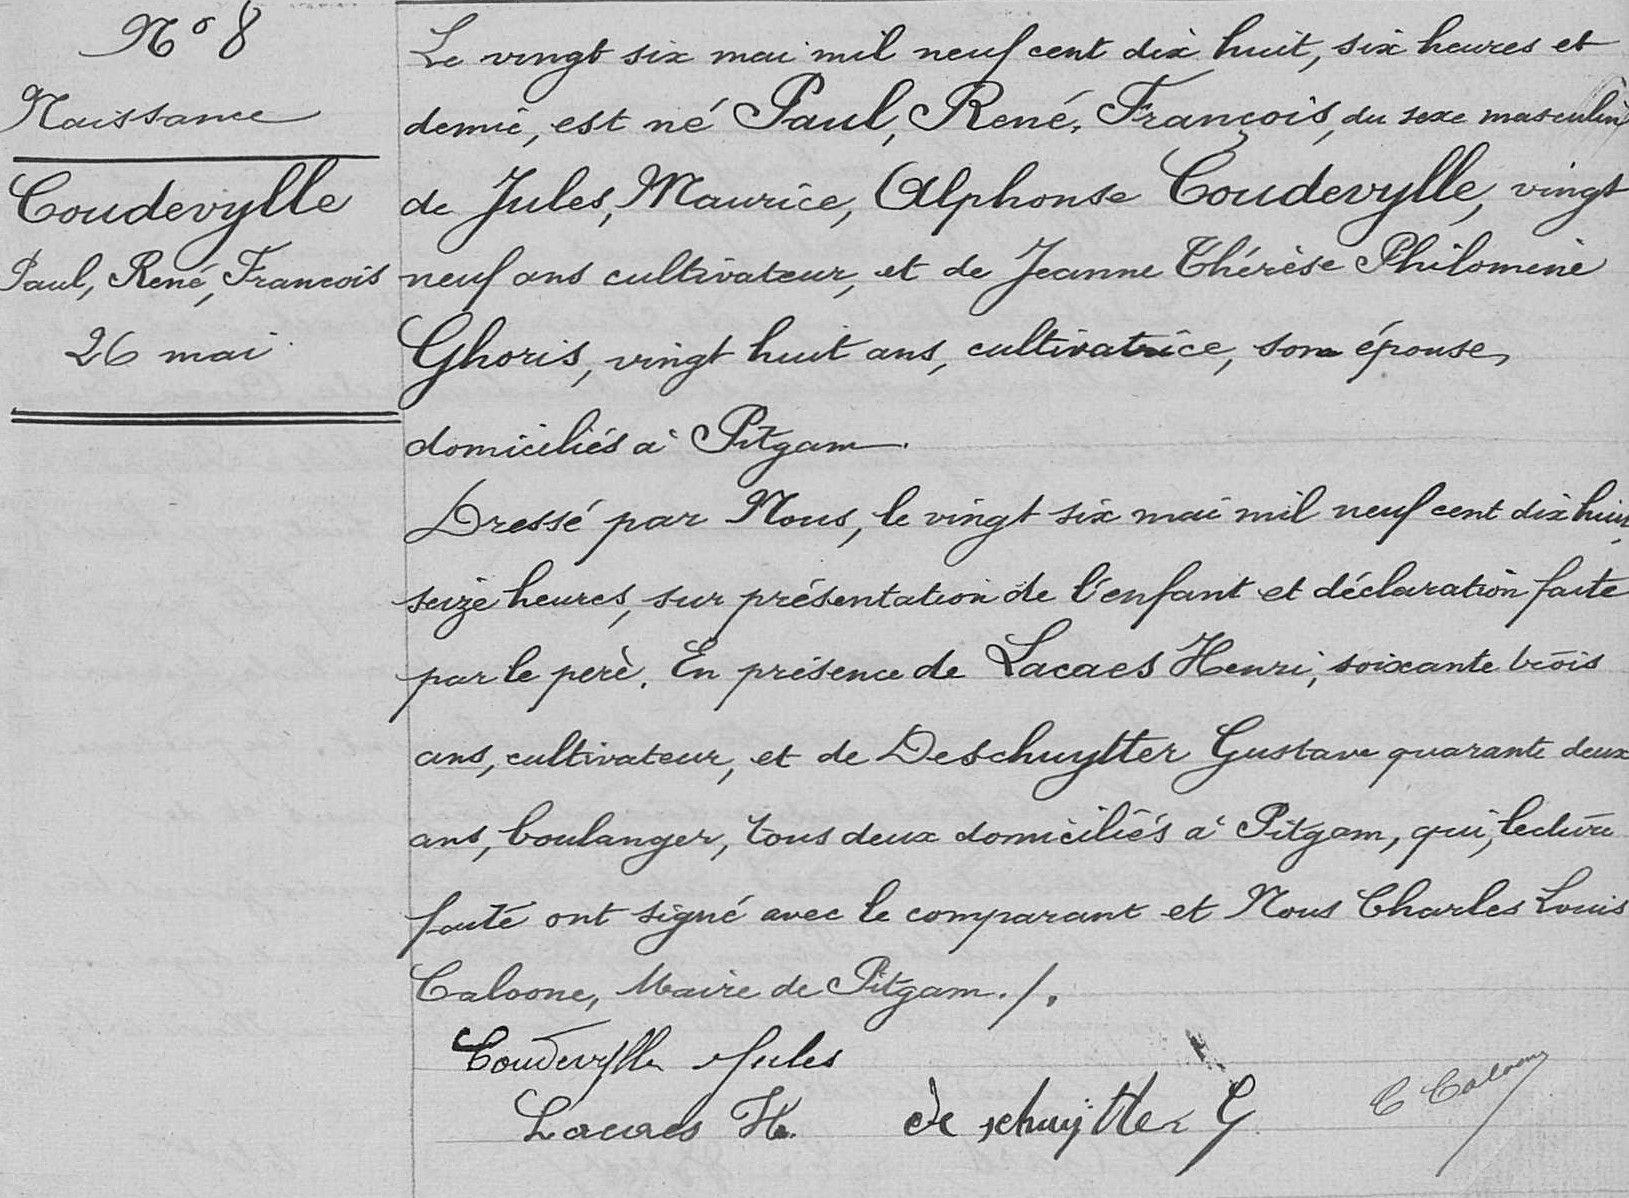 N° 8
Naissance
Coudevylle
Paul, René, François
26 mai
Le vingt six mai mil neuf cent dix huit, six heures et
demie, est né Paul, René, François, du sexe masculin
de Jules, Maurice, Alphonse Coudevylle, vingt
neuf ans cultivateur, et de Jeanne Thérèse Philomène
Ghoris, vingt huit ans, cultivatrice, son épouse,
domiciliés à Pitgam.
Dressé par Nous, le vingt six mai mil neuf cent dix huit,
seize heures, sur présentation de l'enfant et déclaration faite
par le père. En présence de Lacaes Henri, soixante trois
ans, cultivateur, et de Deschuytter Gustave quarante deux
ans, boulanger, tous deux domiciliés à Pitgam, qui, lecture
faite ont signé avec le comparant et Nous Charles Louis
Caloone, Maire de Pitgam ./.
Coudevylle Jules
Lacaes H. de schuÿtter G
C Caloone